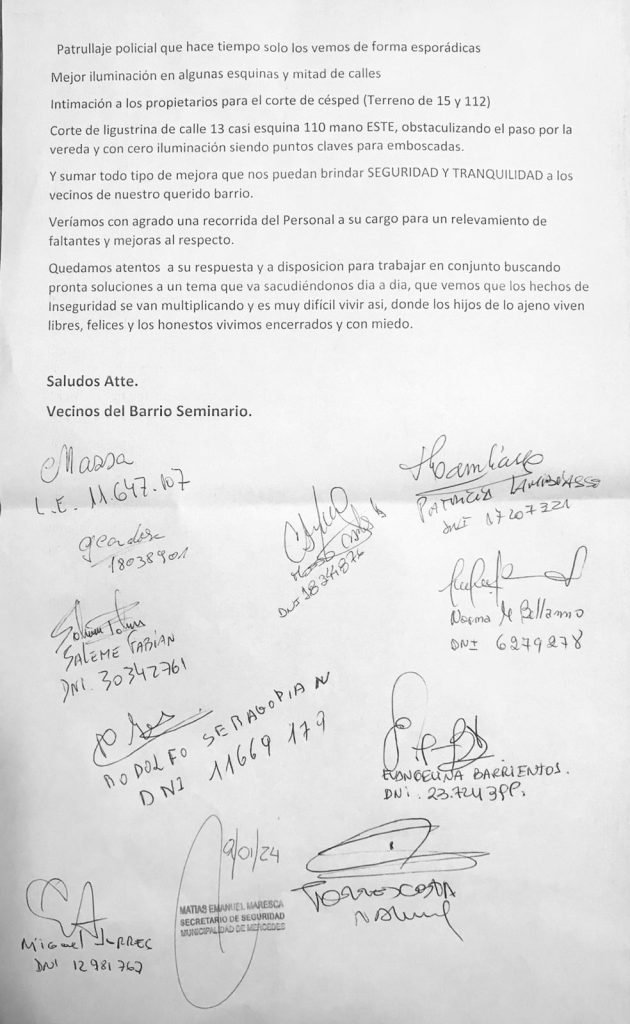 Patrullaje policial que hace tiempo solo los vemos de forma esporádicas
Mejor iluminación en algunas esquinas y mitad de calles
Intimación a los propietarios para el corte de césped (Terreno de 15 y 112)
Corte de ligustrina de calle 13 casi esquina 110 mano ESTE, obstaculizando el paso por la
vereda y con cero iluminación siendo puntos claves para emboscadas.
Y sumar todo tipo de mejora que nos puedan brindar SEGURIDAD Y TRANQUILIDAD a los
vecinos de nuestro querido barrio.
Veríamos con agrado una recorrida del Personal a su cargo para un relevamiento de
faltantes y mejoras al respecto.
Quedamos atentos a su respuesta y a disposicion para trabajar en conjunto buscando
pronta soluciones a un tema que va sacudiéndonos dia a dia, que vemos que los hechos de
Inseguridad se van multiplicando y es muy difícil vivir asi, donde los hijos de lo ajeno viven
libres, felices y los honestos vivimos encerrados y con miedo.
Saludos Atte.
Vecinos del Barrio Seminario.
Massa
L.E. 11.647.107
PATRICIA
DNI 17207321
18038901
DNI
Norma
DNI 6279278
SALEME FABIAN
DNI. 30342761
RODOLFO SERAGOPIAN
DNI 11669 179
EVANGELINA BARRIENTOS.
DNI. 23.724
9/01/24
MATIAS EMANUEL MARESCA
SECRETARIO DE SEGURIDAD
MUNICIPALIDAD DE MERCEDES
Miguel
DNI 12981767